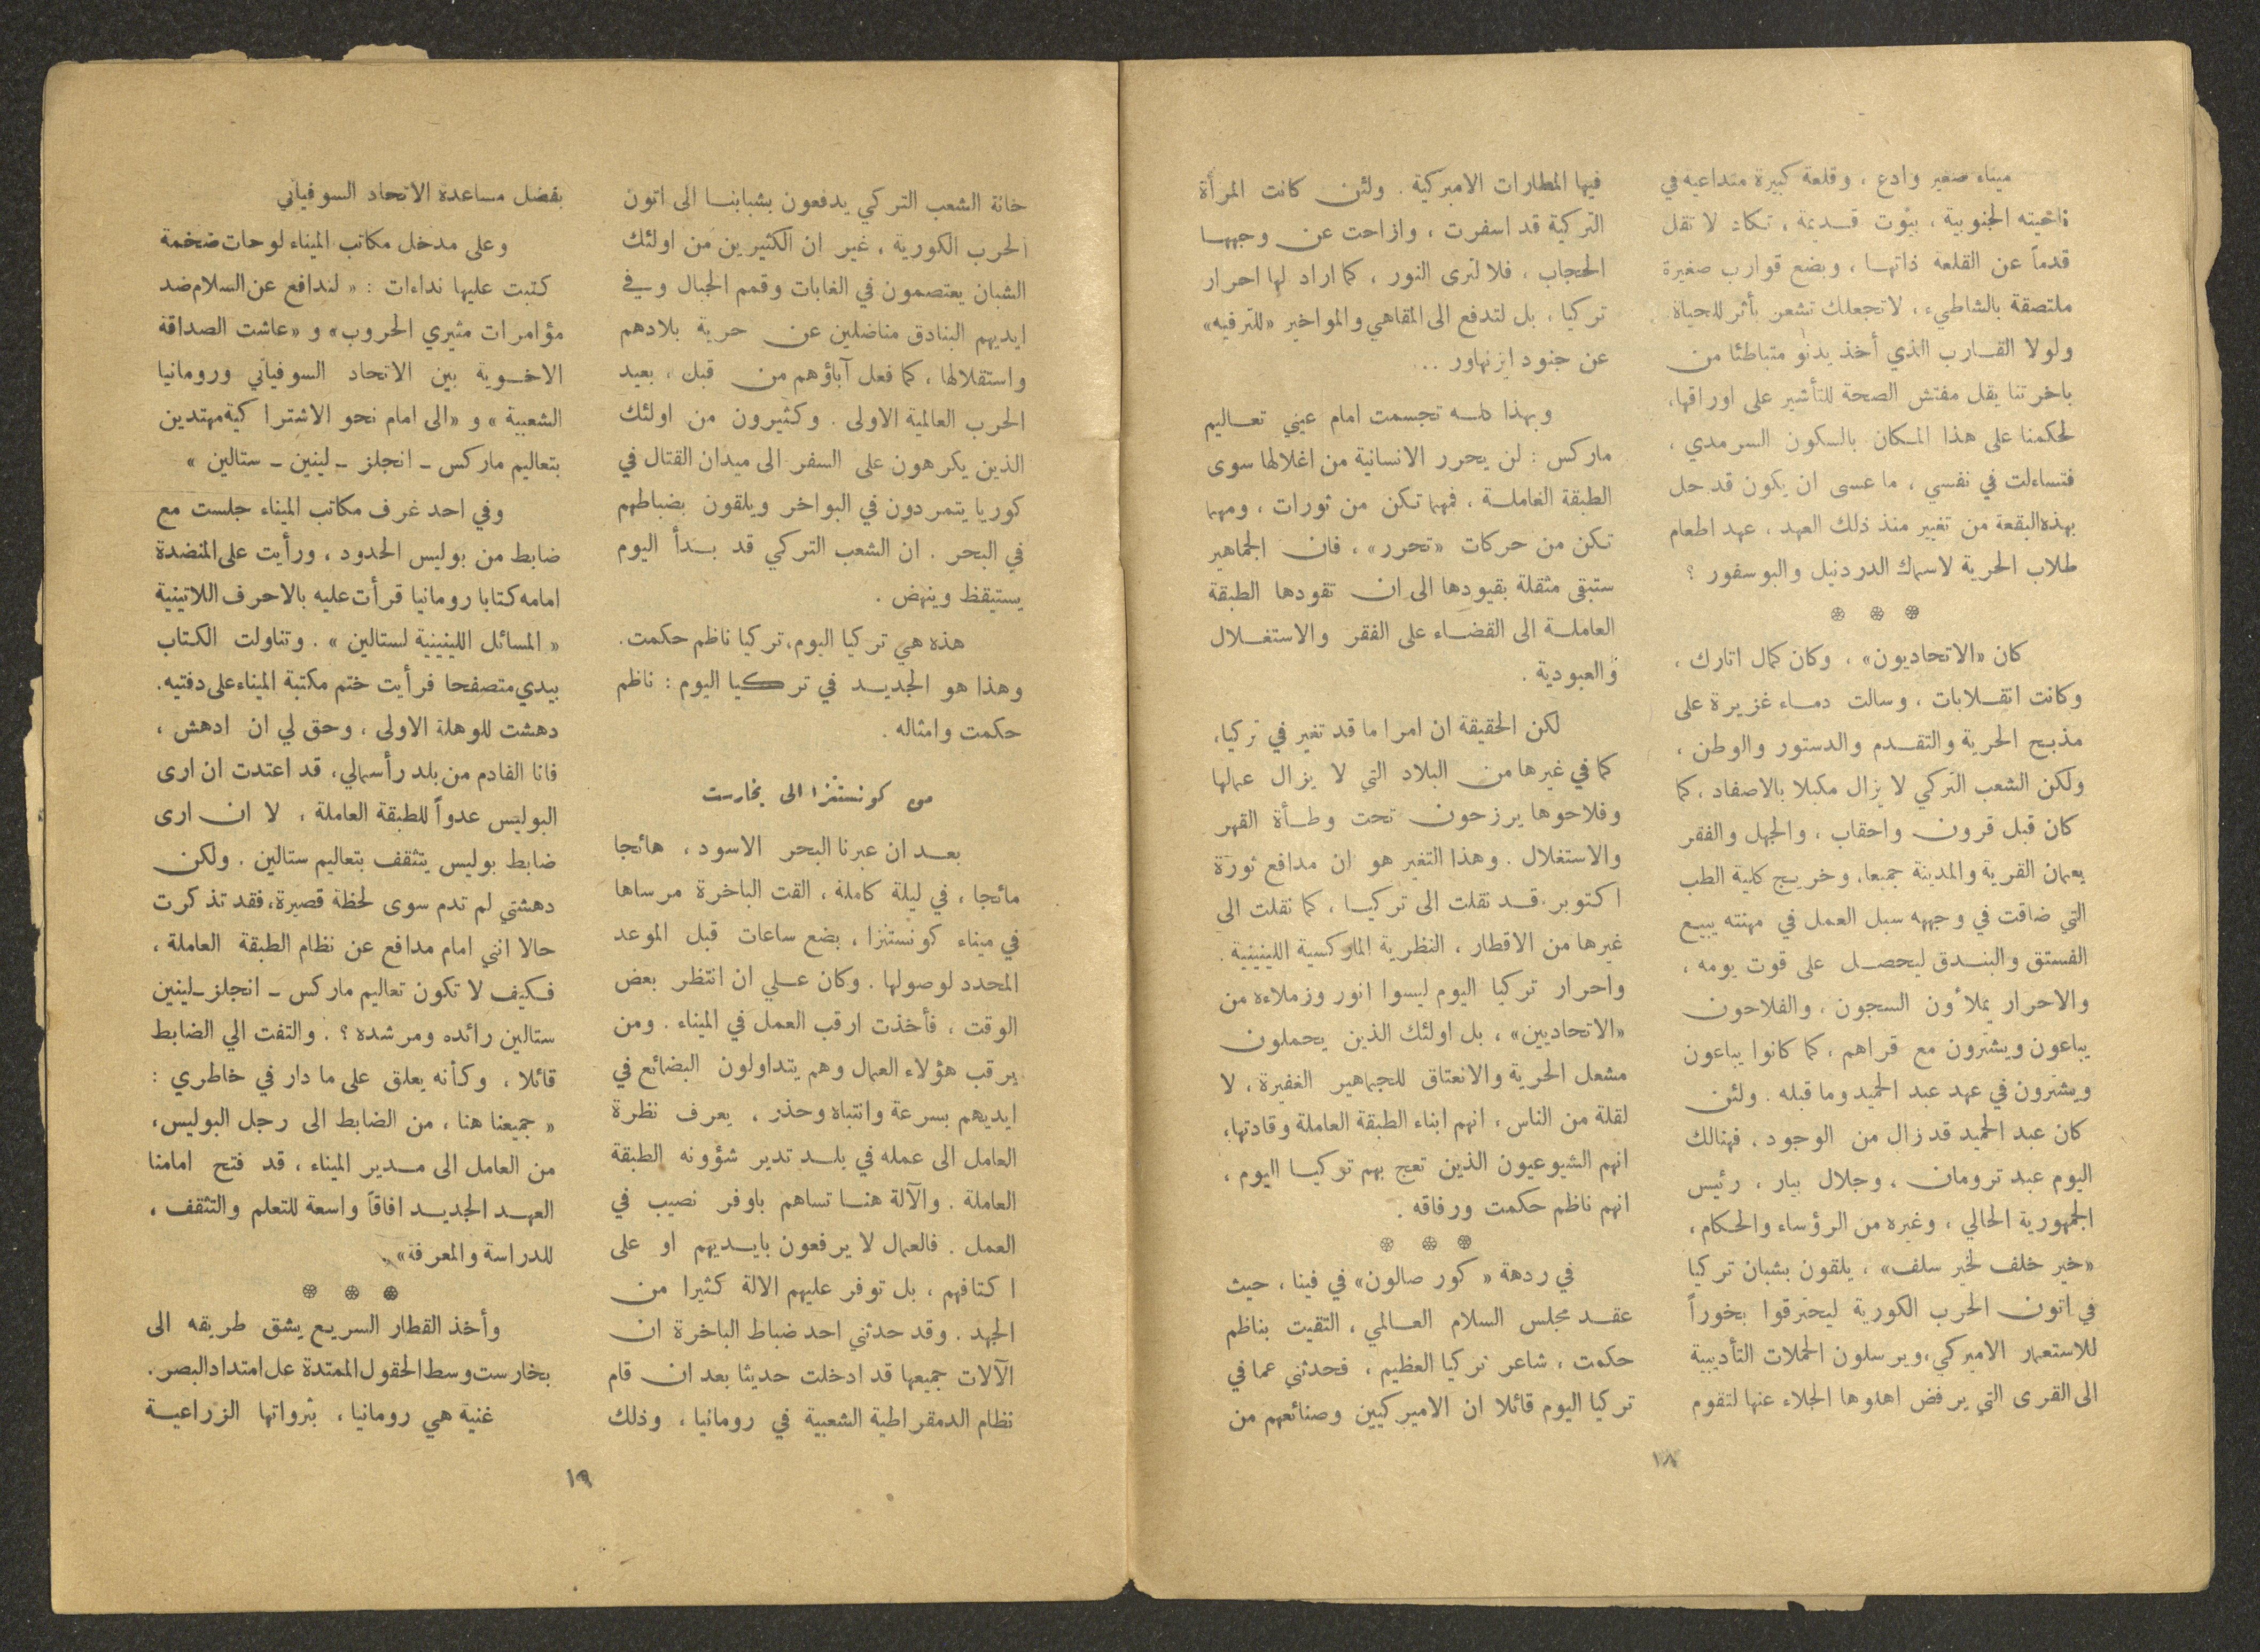 ميناء صغير وادع ، وقلعة كبيرة متداعية في
ناحيته الجنوبية ، بيوت قديمة ، تكاد لا تقل
قدماً عن القلعة ذاتها ، وبضع قوارب صغيرة
ملتصقة بالشاطيء ، لا تجعلك تشعر بأثر للحياة.
ولولا القارب الذي أخذ يدنو متباطئا من
باخرتنا يقل مفتش الصحة للتأشير على اوراقها،
لحكمنا على هذا المكان بالسكون السرمدي ،
فتساءلت في نفسي ، ما عسى ان يكون قد حل
بهذه البقعة من تغيير منذ ذلك العهد ، عهد اطعام
طلاب الحرية لاسماك الدردنيل والبوسفور ؟
❊ ❊ ❊
كان «الاتحاديون» ، وكان كمال اتارك ،
وكانت انقلابات ، وسالت دماء غزيرة على
مذبح الحرية والتقدم والدستور والوطن ،
ولكن الشعب التركي لا يزال مكبلا بالاصفاد ، كما
كان قبل قرون واحقاب ، والجهل والفقر
يعمان القرية والمدينة جميعا، وخريج كلية الطب
التي ضاقت في وجهه سبل العمل في مهنته يبيع
الفستق والبندق ليحصل على قوت يومه ،
والاحرار يملأون السجون ، والفلاحون
يباعون ويشترون مع قراهم ، كما كانوا يباعون
ويشترون في عهد عبد الحميد وما قبله . ولئن
كان عبد الحميد قد زال من الوجود ، فهنالك
اليوم عبد ترومان ، وجلال بيار ، رئيس
الجمهورية الحالي ، وغيره من الرؤساء والحكام ،
«خير خلف لخير سلف» ، يلقون بشبان تركيا
في اتون الحرب الكورية ليحترقوا بخوراً
للاستعمار الاميركي، ويرسلون الحملات التأديبية
الى القرى التي يرفض اهلوها الجلاء عنها لتقوم
فيها المطارات الاميركية . ولئن كانت المرأة
التركية قد اسفرت ، وازاحت عن وجهها
الحجاب ، فلا لترى النور ، كما اراد لها احرار
تركيا ، بل لتدفع الى المقاهي والمواخير «للترفيه»
عن جنود ايزنهاور ...
وبهذا كله تجسمت امام عيني تعاليم
ماركس : لن يحرر الانسانية من اغلالها سوى
الطبقة العاملة ، فمهما تكن من ثورات ، ومهما
تكن من حركات «تحرر» ، فان الجماهير
ستبقى مثقلة بقيودها الى ان تقودها الطبقة
العاملة الى القضاء على الفقر والاستغلال
والعبودية .
لكن الحقيقة ان امرا ما قد تغير في تركيا،
كما في غيرها من البلاد التي لا يزال عمالها
وفلاحوها يرزحون تحت وطأة القهر
والاستغلال . وهذا التغير هو ان مدافع ثورة
اكتوبر قد نقلت الى تركيا ، كما نقلت الى
غيرها من الاقطار ، النظرية الماركسية اللينينية .
واحرار تركيا اليوم ليسوا انور وزملاءه من
«الاتحاديين» ، بل اولئك الذين يحملون
مشعل الحرية والانعتاق للجماهير الغفيرة ، لا
لقلة من الناس ، انهم ابناء الطبقة العاملة وقادتها،
انهم الشيوعيون الذين تعج بهم تركيا اليوم ،
انهم ناظم حكمت ورفاقه .
❊ ❊ ❊
في ردهة « كور صالون» في فينا ، حيث
عقد مجلس السلام العالمي ، التقيت بناظم
حكمت ، شاعر تركيا العظيم ، فحدثني عما في
تركيا اليوم قائلا ان الاميركيين وصنائعهم من
١٨
خانة الشعب التركي يدفعون بشبابنا الى اتون
الحرب الكورية ، غير ان الكثيرين من اولئك
الشبان يعتصمون في الغابات وقمم الجبال وفي
ايديهم البنادق مناضلين عن حرية بلادهم
واستقلالها ، كما فعل آباؤهم من قبل ، بعيد
الحرب العالمية الاولى . وكثيرون من اولئك
الذين يكرهون على السفر الى ميدان القتال في
كوريا يتمردون في البواخر ويلقون بضباطهم
في البحر . ان الشعب التركي قد بدأ اليوم
يستيقظ وينهض .
هذه هي تركيا اليوم، تركيا ناظم حكمت.
وهذا هو الجديد في تركيا اليوم : ناظم
حكمت وامثاله .
من كونستنزا الى بخارست
بعد ان عبرنا البحر الاسود ، هائجا
مائجا ، في ليلة كاملة ، القت الباخرة مرساها
في ميناء كونستنزا ، بضع ساعات قبل الموعد
المحدد لوصولها . وكان علي ان انتظر بعض
الوقت ، فأخذت ارقب العمل في الميناء . ومن
يرقب هؤلاء العمال وهم يتداولون البضائع في
ايديهم بسرعة وانتباه وحذر ، يعرف نظرة
العامل الى عمله في بلد تدير شؤونه الطبقة
العاملة . والآلة هنا تساهم باوفر نصيب في
العمل . فالعمال لا يرفعون بايديهم او على
اكتافهم ، بل توفر عليهم الالة كثيرا من
الجهد . وقد حدثني احد ضباط الباخرة ان
الآلات جميعها قد ادخلت حديثا بعد ان قام
نظام الدمقراطية الشعبية في رومانيا ، وذلك
بفضل مساعدة الاتحاد السوفياتي
وعلى مدخل مكاتب الميناء لوحات ضخمة
كتبت عليها نداءات : « لندافع عن السلام ضد
مؤامرات مثيري الحروب» و «عاشت الصداقة
الاخوية بين الاتحاد السوفياتي ورومانيا
الشعبية » و «الى امام نحو الاشتراكية مهتدين
بتعاليم ماركس ـ انجلز ـ لينين ـ ستالين »
وفي احد غرف مكاتب الميناء جلست مع
ضابط من بوليس الحدود ، ورأيت على المنضدة
امامه كتابا رومانيا قرأت عليه بالاحرف اللاتينية
« المسائل اللينينية لستالين » . وتناولت الكتاب
بيدي متصفحا فرأيت ختم مكتبة الميناء على دفتيه.
دهشت للوهلة الاولى ، وحق لي ان ادهش ،
فانا القادم من بلد رأسمالي، قد اعتدت ان ارى
البوليس عدواً للطبقة العاملة ، لا ان ارى
ضابط بوليس يتثقف بتعاليم ستالين . ولكن
دهشتي لم تدم سوى لحظة قصيرة، فقد تذكرت
حالا انني امام مدافع عن نظام الطبقة العاملة ،
فكيف لا تكون تعاليم ماركس ـ انجلز ـ لينين
ستالين رائده ومرشده ؟ . والتفت الي الضابط
قائلا ، وكأنه يعلق على ما دار في خاطري :
« جميعنا هنا ، من الضابط الى رجل البوليس،
من العامل الى مدير الميناء ، قد فتح امامنا
العهد الجديد افاقاً واسعة للتعلم والتثقف ،
للدراسة والمعرفة» .
❊ ❊ ❊
وأخذ القطار السريع يشق طريقه الى
بخارست وسط الحقول الممتدة عل امتداد البصر.
غنية هي رومانيا ، بثرواتها الزراعية
١٩